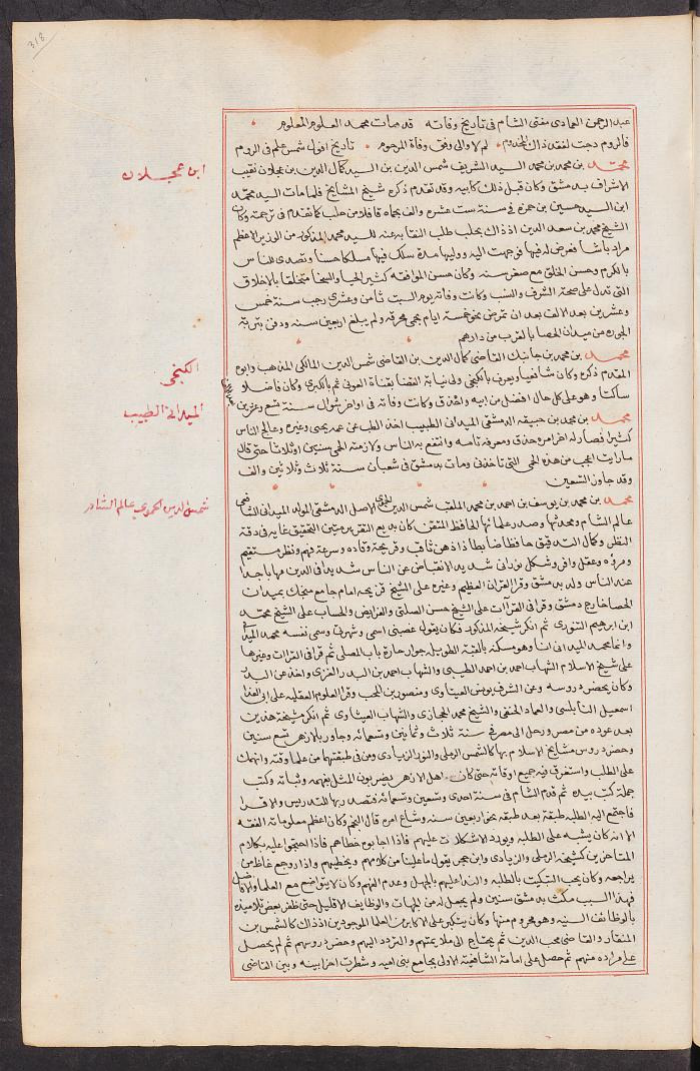 318
عبد الرحمن العمادى مفتى الشام فى تاريخ وفاته قد مات محمد العلوم المعلوم
فالروم دجت لفقد ذاك المخدوم لم لا والى وفق وفاة المرحوم تاريخ افول شمس علم فى الروم
محمد بن محمد بن محمد السيد الشريف شمس الدين بن السيد كمال الدين بن عجلان نقيب
ابن عجلان
الاشراف بدمشق وكان قبل ذلك كابيه وقد تقدم ذكره شيخ المشايخ فلما مات السيد محمد
ابن السيد حسين بن حمزه فى سنة ست عشره والف بحماه قافلا من حلب كما تقدم فى ترجمته وكان
الشيخ محمد بن سعد الدين اذ ذاك بحلب طلب النقابه عنه للسيد محمد المذكور من الوزير الاعظم
مراد باشا فعرض له فيها فوجهت اليه ووليها مدة سلك فيها مسلكا حسنا وتصدى للناس
بالكرم وحسن الخلق مع صغر سنه وكان حسن الموافقه كثير الحيا والسخا متخلقا بالاخلاق
التى تدل على صحة الشرف والنسب وكانت وفاته يوم السبت ثامن وعشرى رجب سنة خمس
وعشرين بعد الالف بعد ان تمرض نحو خمسة ايام بحمى محرقه ولم يبلغ اربعين سنه ودفن بتربة
الجوره من ميدان الحصا بالقرب من دارهم
محمد بن محمد بن جانبك القاضى كمال الدين بن القاضى شمس الدين المالكى المذهب وابوه
الكنجى
المقدم ذكره وكان شافعيا ويعرف بالكنجى ولى نيابة القضا بقناة العونى ثم بالكبرى وكان فاضلا
ساكتا وهو على كل حال افضل من ابيه واصدق وكانت وفاته فى اواخر شوال سنة تسع وعشرين
بعد الالف
محمد بن محمد بن حبيقه الدمشقى الميدانى الطبيب اخذ الطب عن عمه يحيى وغيره وعالج الناس
الميدانى الطبيب
كثيرا فصار له اخر امره حذق ومعرفة تامه وانتفع به الناس ولازمته الحمى سنتين او ثلاثا حتى قال
ما رايت اعجب من هذه الحمى التى تاخذنى ومات بدمشق فى شعبان سنة ثلاث وثلاثين والف
وقد جاوز السبعين
محمد بن محمد بن يوسف بن احمد بن محمد الملقب شمس الدين الحموى الاصل الدمشقى المولد الميدانى الشافعى
شمس الدين الحموى عالم الشام
عالم الشام ومحدثها وصدر علمائها الحافظ المتقن كان بديع التقرير متين التحقيق غايه فى دقة
النظر وكمال التدقيق حافظا ضابطا ذا ذهن ثاقب وقريحة وقاده وسرعة فهم ونظر مستقيم
ومروه وعقل وافر وشكل نورانى شديد الانقباض عن الناس شديدا فى الدين مهابا جدا
عند الناس ولد بدمشق وقرا القران العظيم وغيره على الشيخ قريحه امام جامع منجك بميدان
الحصا خارج دمشق وقرا فى القراات على الشيخ حسن الصلتى والفرايض والحساب على الشيخ محمد
ابن ابرهيم التنورى ثم انكر شيخه المذكور فكان يقول غصبنى اسمى وشهرتى وسمى نفسه محمد الميدانى
وانما محمد الميدانى انا وهو مسكنه بالقبة الطويله جوار حارة باب المصلى ثم قرا فى القراات وغيرها
على شيخ الاسلام الشهاب احمد بن احمد الطيبى والشهاب احمد بن البدر الغزى واخذ عن البدر
وكان يحضر دروسه وعن الشرف يونس العيثاوى ومنصور بن المحب وقرا العلوم العقليه على ابى الفدا
اسمعيل النابلسى والعماد الحنفى والشيخ محمد الحجازى والشهاب العيثاوى ثم انكر مشيخة هذين
بعد عوده من مصر ورحل الى مصر فى سنة ثلاث وثمانين وتسعمائه وجاور بالازهر تسع سنين
وحضر دروس مشايخ الاسلام بها كالشمس الرملى والنور الزيادى ومن فى طبقتهما من علما وقته وانهمك
على الطلب واستغرق فيه جميع اوقاته حتى كان اهل الازهر يضربون المثل بفهمه وثباته وكتب
جملة كتب بيده ثم قدم الشام فى سنة احدى وتسعين وتسعمائه فتصدر بها للتدريس والاقرا
فاجتمع اليه الطلبه طبقة بعد طبقه نحو اربعين سنه وشاع امره قال النجم وكان اعظم معلوماته الفقه
الا انه كان يشبه على الطلبه ويورد الاشكالات عليهم فاذا اجابوه خطاهم فاذا احتجوا عليه بكلام
المتاخرين كشيخيه الرملى والزيادى وابن حجر يقول ما علينا من كلامهم ويخطيهم واذا روجع غلاظ من
يراجعه وكان يحب التبكيت بالطلبه والندا عليهم بالجهل وعدم الفهم وكان لا يتواضع مع العلما والافاضل
فبهذا السبب مكث بدمشق سنين ولم يحصل له من الجهات والوظايف الا قليل حتى ظفر بعض تلاميذه
بالوظايف السنيه وهو محروم منها وكان يتكبر على الاكابر من العلما الموجودين اذ ذاك كالشمس بن
المنقار والقاضى محب الدين ثم يحتاج الى ملايمتهم والتردد اليهم وحضر دروسهم ثم لم يحصل
على مراده منهم ثم حصل على امامة الشافعية الاولى بجامع بنى اميه وشطرت اخرا بينه وبين القاضى